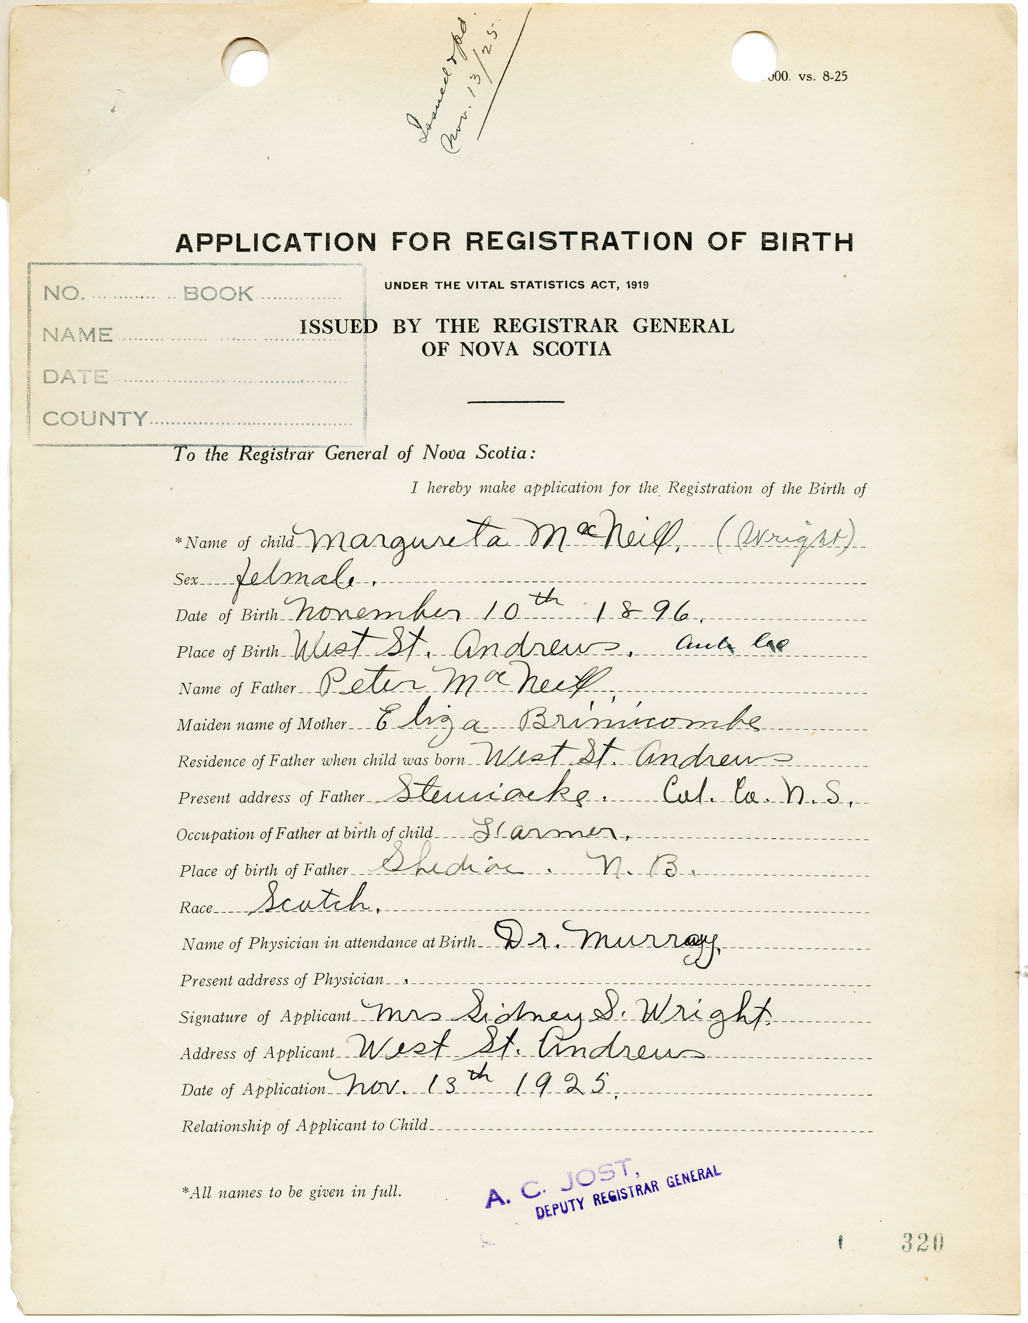 Issued & pd.
Nov. 13/25.
000. vs. 8-25
APPLICATION FOR REGISTRATION OF BIRTH
UNDER THE VITAL STATISTICS ACT, 1919
ISSUED BY THE REGISTRAR GENERAL
OF NOVA SCOTIA
NO. BOOK
NAME
DATE
COUNTY
To the Registrar General of Nova Scotia:
I hereby make application for the Registration of the Birth of
*Name of child Margureta MacNeill, (Wright)
Sex felmale.
Date of Birth November 10th 1896.
Place of Birth West St. Andrews.
Name of Father Peter MacNeill.
Maiden name of Mother Eliza Brinicombe
Residence of Father when child was born West St. Andrews
Present address of Father Stewiacke. Col. Co. N. S.
Occupation of Father at birth of child Farmer.
Place of birth of Father Shediac. N. B.
Race Scotch.
Name of Physician in attendance at Birth Dr. Murray.
Present address of Physician
Signature of Applicant Mrs Sidney S. Wright.
Address of Applicant West St. Andrews
Date of Application Nov. 13th 1925.
Relationship of Applicant to Child
*All names to be given in full.
A. C. JOST,
DEPUTY REGISTRAR GENERAL
320